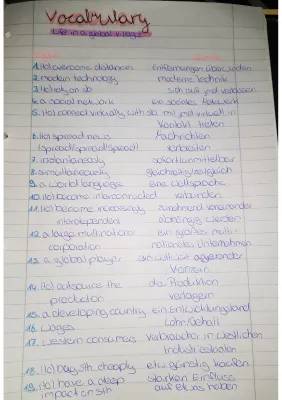 Vocabulary
Life in a global village
1. (to) overcome distances Entfernungen überwinden
2. modern technology moderne Technik
3. (to) rely on sb sich auf jmd verlassen
4. a social network ein soziales Netzwerk
5. (to) connect virtually with sb mit jmd virtuell in
Kontakt treten
6. (to) spread news Nachrichten
(spread/spread/spread) verbreiten
7. instantaneously sofort/unmittelbar
8. simultaneously gleichzeitig/zeitgleich
9. a world language eine Weltsprache
10. (to) become interconnected verbinden
11. (to) become increasingly zunehmend voneinander
interdependent abhängig werden
12. a large multinational ein großes multi-
corporation nationales Unternehmen
13. a global player ein weltweit agierender
Konzern
14. (to) outsource the die Produktion
production verlagern
15. a developing country ein Entwicklungsland
16. Wages Lohn/Gehalt
17. Western consumers Verbraucher in westlichen
Industriestaaten
18. (to) buy sth. cheaply etw günstig kaufen
19. (to) have a deep starken Einfluss
impact on sth auf etwas haben